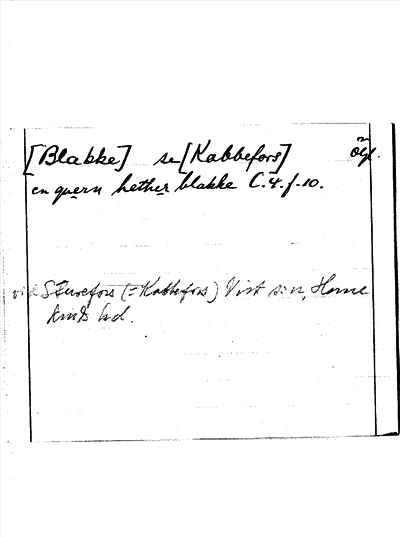 [Blakke] se [Kabbefors] Ögl.
en quern hether blakke C.4.f.10.
vid Sturefors (= Kabbefors) Vist s:n, Hanekinds hd.